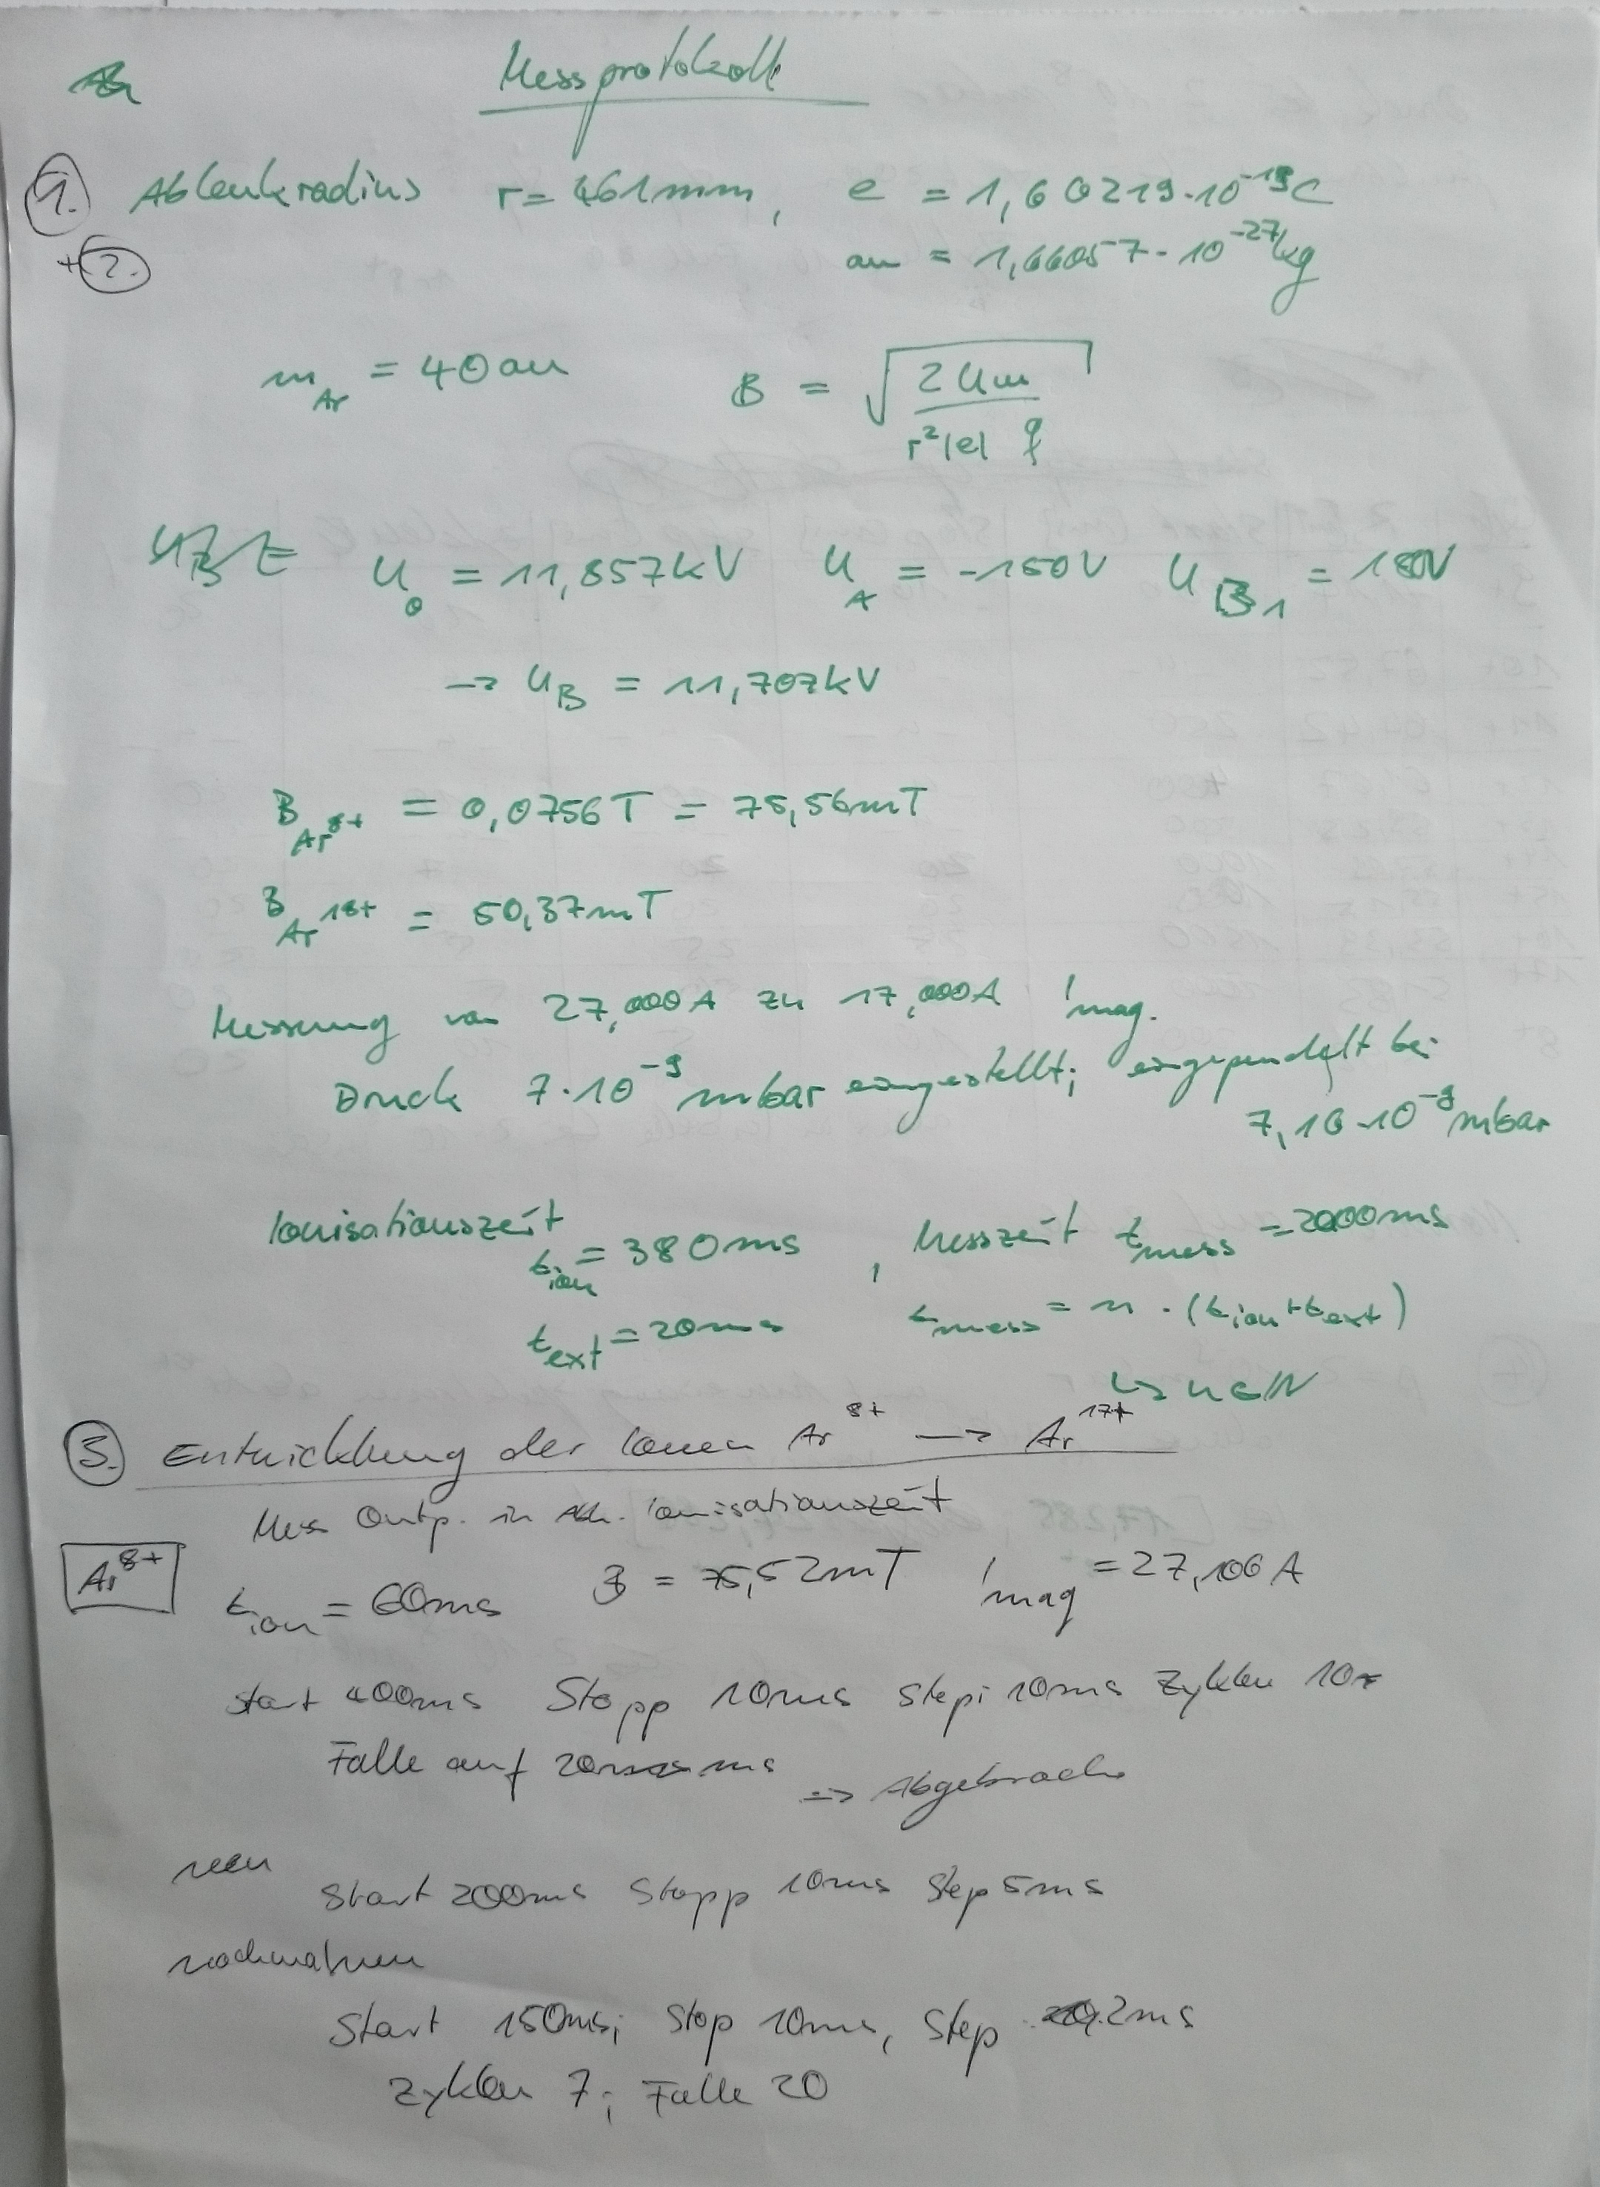 Messprotokoll
1. Ablenkradius r = 461mm, e = 1,60219·10^-19 C
+2. au = 1,66057·10^-27 kg
m_Ar = 40au B = √(2Um / r²|e| q)
U_0 = 11,857kV U_A = -150V U_B1 = 150V
→ U_B = 11,707kV
B_Ar^8+ = 0,0756T = 75,56mT
B_Ar^18+ = 50,37mT
Messung von 27,000A zu 17,000A I_mag.
Druck 7·10^-9 mbar eingestellt; eingependelt bei
7,10·10^-9 mbar
Ionisationszeit
t_ion = 380ms, Messzeit t_mess = 2000ms
t_ext = 20ms t_mess = n·(t_ion+t_ext)
↳ n∈N
3. Entwicklung der Ionen Ar^8+ → Ar^17+
Mess Outp. in Abh. Ionisationszeit
Ar^8+
t_ion = 60ms B = 75,52mT I_mag = 27,106A
Start 400ms Stopp 10ms Step: 10ms Zyklen 10
Falle auf 20 ms ⇒ Abgebrochen
neu
Start 200ms Stopp 10ms Step 5ms
nochmahlen
Start 150ms; Stop 10ms, Step 2ms
Zyklen 7; Falle 20